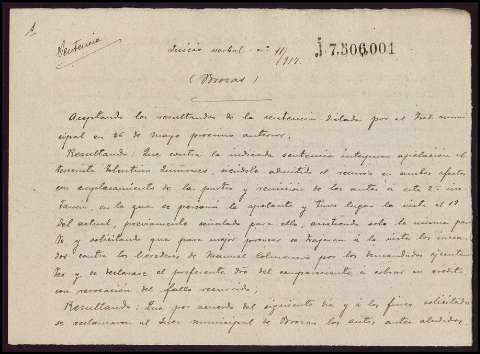 Sentencia
Juicio verbal nº 11/914.
J 7.506,001
(Brozas)
Aceptando los resultandos de la sentencia dictada por el Juez muni-
cipal en 26 de mayo proximo anterior.
Resultando: Que contra la indicada sentencia interpuso apelacion el
demandante admitido el recurso en ambos efectos
con emplazamiento de las partes y remision de los autos á esta 2ª ins-
tancia, en la que se personó la apelante y tuvo lugar la vista el 19
del actual, previamente señalado para ello, asistiendo solo la misma par-
te y solicitando que para mejor proveer se trajeran á la vista los incoa-
dos contra los herederos de Manuel por los demandados ejecutan-
tes y se declarase el preferente dro del compareciente á cobrar su credito
con revocacion del fallo recurrido.
Resultando: Que por acuerdo del siguiente dia y á los fines solicitados
se reclamaron al Juez municipal de Brozas los autos antes aludidos.